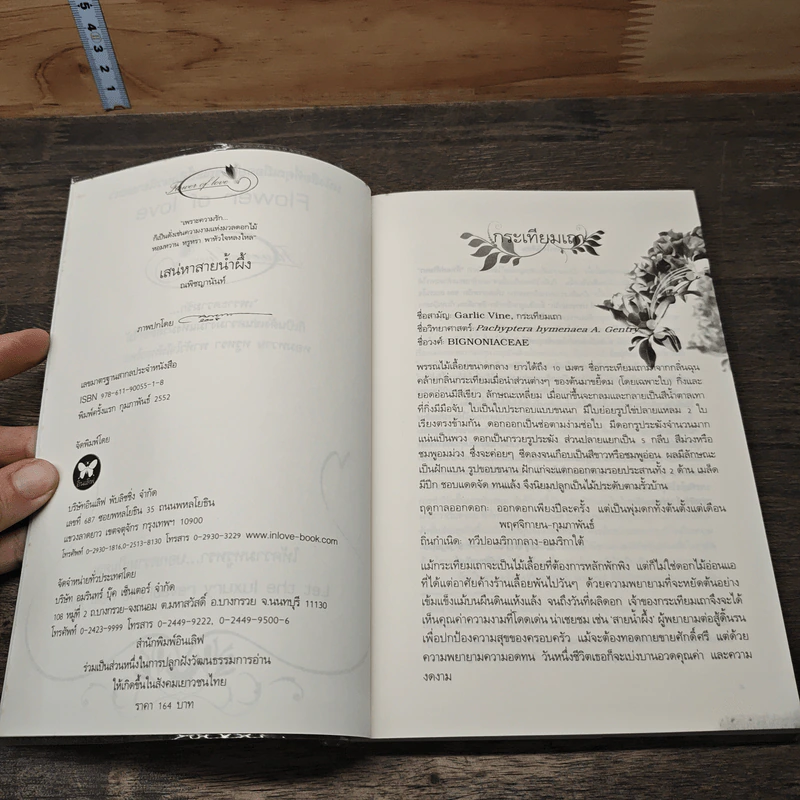 5
4
3
2
1
Flower of love
"เพราะความรัก...
ก็เป็นดั่งเช่นความงามแห่งมวลดอกไม้
หอมหวาน หรูหรา พาหัวใจหลงใหล"
เสน่หาสายน้ำผึ้ง
ณพิชญานันท์
ภาพปกโดย
เลขมาตรฐานสากลประจำหนังสือ
ISBN 978-611-90055-1-8
พิมพ์ครั้งแรก กุมภาพันธ์ 2552
จัดพิมพ์โดย
อินเลิฟ
บริษัทอินเลิฟ พับลิชชิ่ง จำกัด
เลขที่ 687 ซอยพหลโยธิน 35 ถนนพหลโยธิน
แขวงลาดยาว เขตจตุจักร กรุงเทพฯ 10900
โทรศัพท์ 0-2930-1816,0-2513-8130 โทรสาร 0-2930-3229 www.inlove-book.com
จัดจำหน่ายทั่วประเทศโดย
บริษัท อมรินทร์ บุ๊ค เซ็นเตอร์ จำกัด
108 หมู่ที่ 2 ถ.บางกรวย-จงถนอม ต.มหาสวัสดิ์ อ.บางกรวย จ.นนทบุรี 11130
โทรศัพท์ 0-2423-9999 โทรสาร 0-2449-9222, 0-2449-9500-6
สำนักพิมพ์อินเลิฟ
ร่วมเป็นส่วนหนึ่งในการปลูกฝังวัฒนธรรมการอ่าน
ให้เกิดขึ้นในสังคมเยาวชนไทย
ราคา 164 บาท
กระเทียมเถา
ชื่อสามัญ: Garlic Vine, กระเทียมเถา
ชื่อวิทยาศาสตร์: Pachyptera hymenaea A. Gentry
ชื่อวงศ์: BIGNONIACEAE
พรรณไม้เลื้อยขนาดกลาง ยาวได้ถึง 10 เมตร ชื่อกระเทียมเถามาจากกลิ่นฉุน
คล้ายกลิ่นกระเทียมเมื่อนำส่วนต่างๆ ของต้นมาขยี้ดม (โดยเฉพาะใบ) กิ่งและ
ยอดอ่อนมีสีเขียว ลักษณะเหลี่ยม เมื่อแก่ขึ้นจะกลมและกลายเป็นสีน้ำตาลเทา
ที่กิ่งมีมือจับ ใบเป็นใบประกอบแบบขนนก มีใบย่อยรูปไข่ปลายแหลม 2 ใบ
เรียงตรงข้ามกัน ดอกออกเป็นช่อตามง่ามช่อใบ มีดอกรูประฆังจำนวนมาก
แน่นเป็นพวง ดอกเป็นกรวยรูประฆัง ส่วนปลายแยกเป็น 5 กลีบ สีม่วงหรือ
ชมพูอมม่วง ซึ่งจะค่อยๆ ซีดลงจนเกือบเป็นสีขาวหรือชมพูอ่อน ผลมีลักษณะ
เป็นฝักแบน รูปขอบขนาน ฝักแก่จะแตกออกตามรอยประสานทั้ง 2 ด้าน เมล็ด
มีปีก ชอบแดดจัด ทนแล้ง จึงนิยมปลูกเป็นไม้ประดับตามรั้วบ้าน
ฤดูกาลออกดอก: ออกดอกเพียงปีละครั้ง แต่เป็นพุ่มดกทั้งต้นตั้งแต่เดือน
พฤศจิกายน-กุมภาพันธ์
ถิ่นกำเนิด: ทวีปอเมริกากลาง-อเมริกาใต้
แม้กระเทียมเถาจะเป็นไม้เลื้อยที่ต้องการหลักพักพิง แต่ก็ไม่ใช่ดอกไม้อ่อนแอ
ที่ได้แต่อาศัยค้างร้านเลื้อยพันไปวันๆ ด้วยความพยายามที่จะหยัดต้นอย่าง
เข้มแข็งแม้บนผืนดินแห้งแล้ง จนถึงวันที่ผลิดอก เจ้าของกระเทียมเถาจึงจะได้
เห็นคุณค่าความงามที่โดดเด่น น่าเชยชม เช่น 'สายน้ำผึ้ง' ผู้พยายามต่อสู้ดิ้นรน
เพื่อปกป้องความสุขของครอบครัว แม้จะต้องทอดกายขายศักดิ์ศรี แต่ด้วย
ความพยายามความอดทน วันหนึ่งชีวิตเธอก็จะเบ่งบานอวดคุณค่า และความ
งดงาม